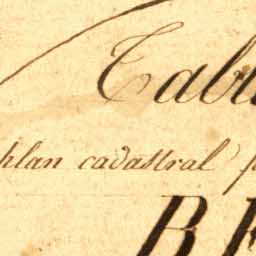 Tabl
plan cadastral p
BE